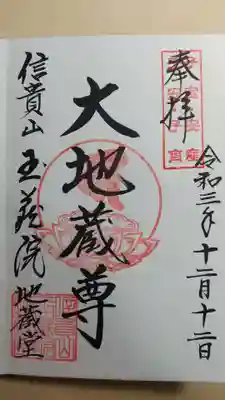 奉拝
令和三年十二月十二日
大地蔵尊
信貴山 玉蔵院 地蔵堂